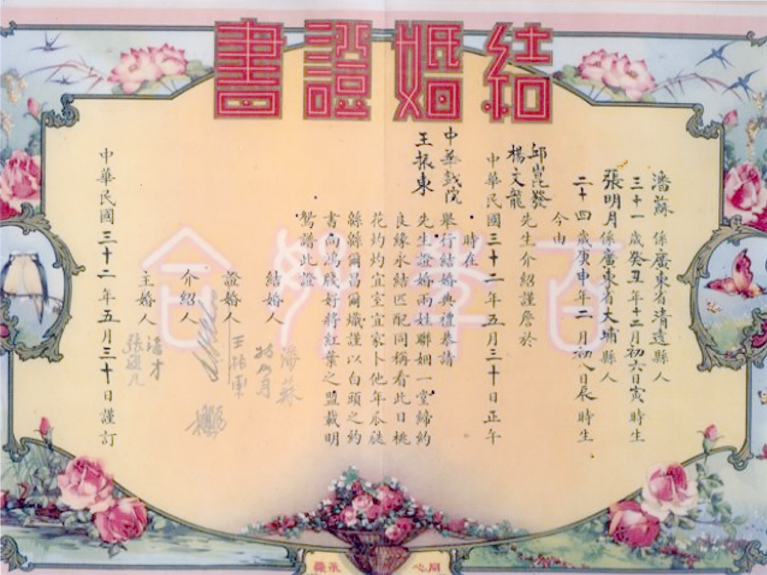 結婚證書
潘蘇 係廣東省清遠縣人
三十一歲癸丑年十二月初六日寅時生
張明月係廣東省大埔縣人
二十四歲庚申年二月初八日辰時生
今由
邱崑發
楊文龍 先生介紹謹詹於
中華民國三十二年五月三十日正午
時在
中華戲院 舉行結婚典禮恭請
王振東 先生證婚兩姓聯姻一堂締約
良緣永結匹配同稱看此日桃
花灼灼宜室宜家卜他年瓜瓞
緜緜爾昌爾熾謹以白頭之約
書向鴻牋好將紅葉之盟載明
鴛譜此證
結婚人 潘蘇
證婚人 王振東
介紹人
主婚人 潘才
中華民國三十二年五月三十日謹訂